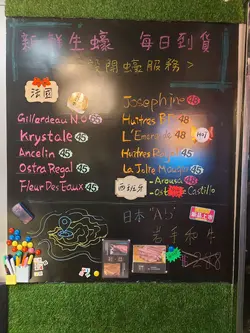 新鮮生蠔 每日到貨
設開蠔服務 >
法國
Gillardeau Nº
Krystale 45
Ancelin 45
Ostra Regal 45
Fleur Des Eaux 45
Josephine 48
Huîtres
L'Emeraude 48
Huîtres
La Jolie 48
西班牙
- Arousa 48
Castillo
日本 "A5"
岩手和牛